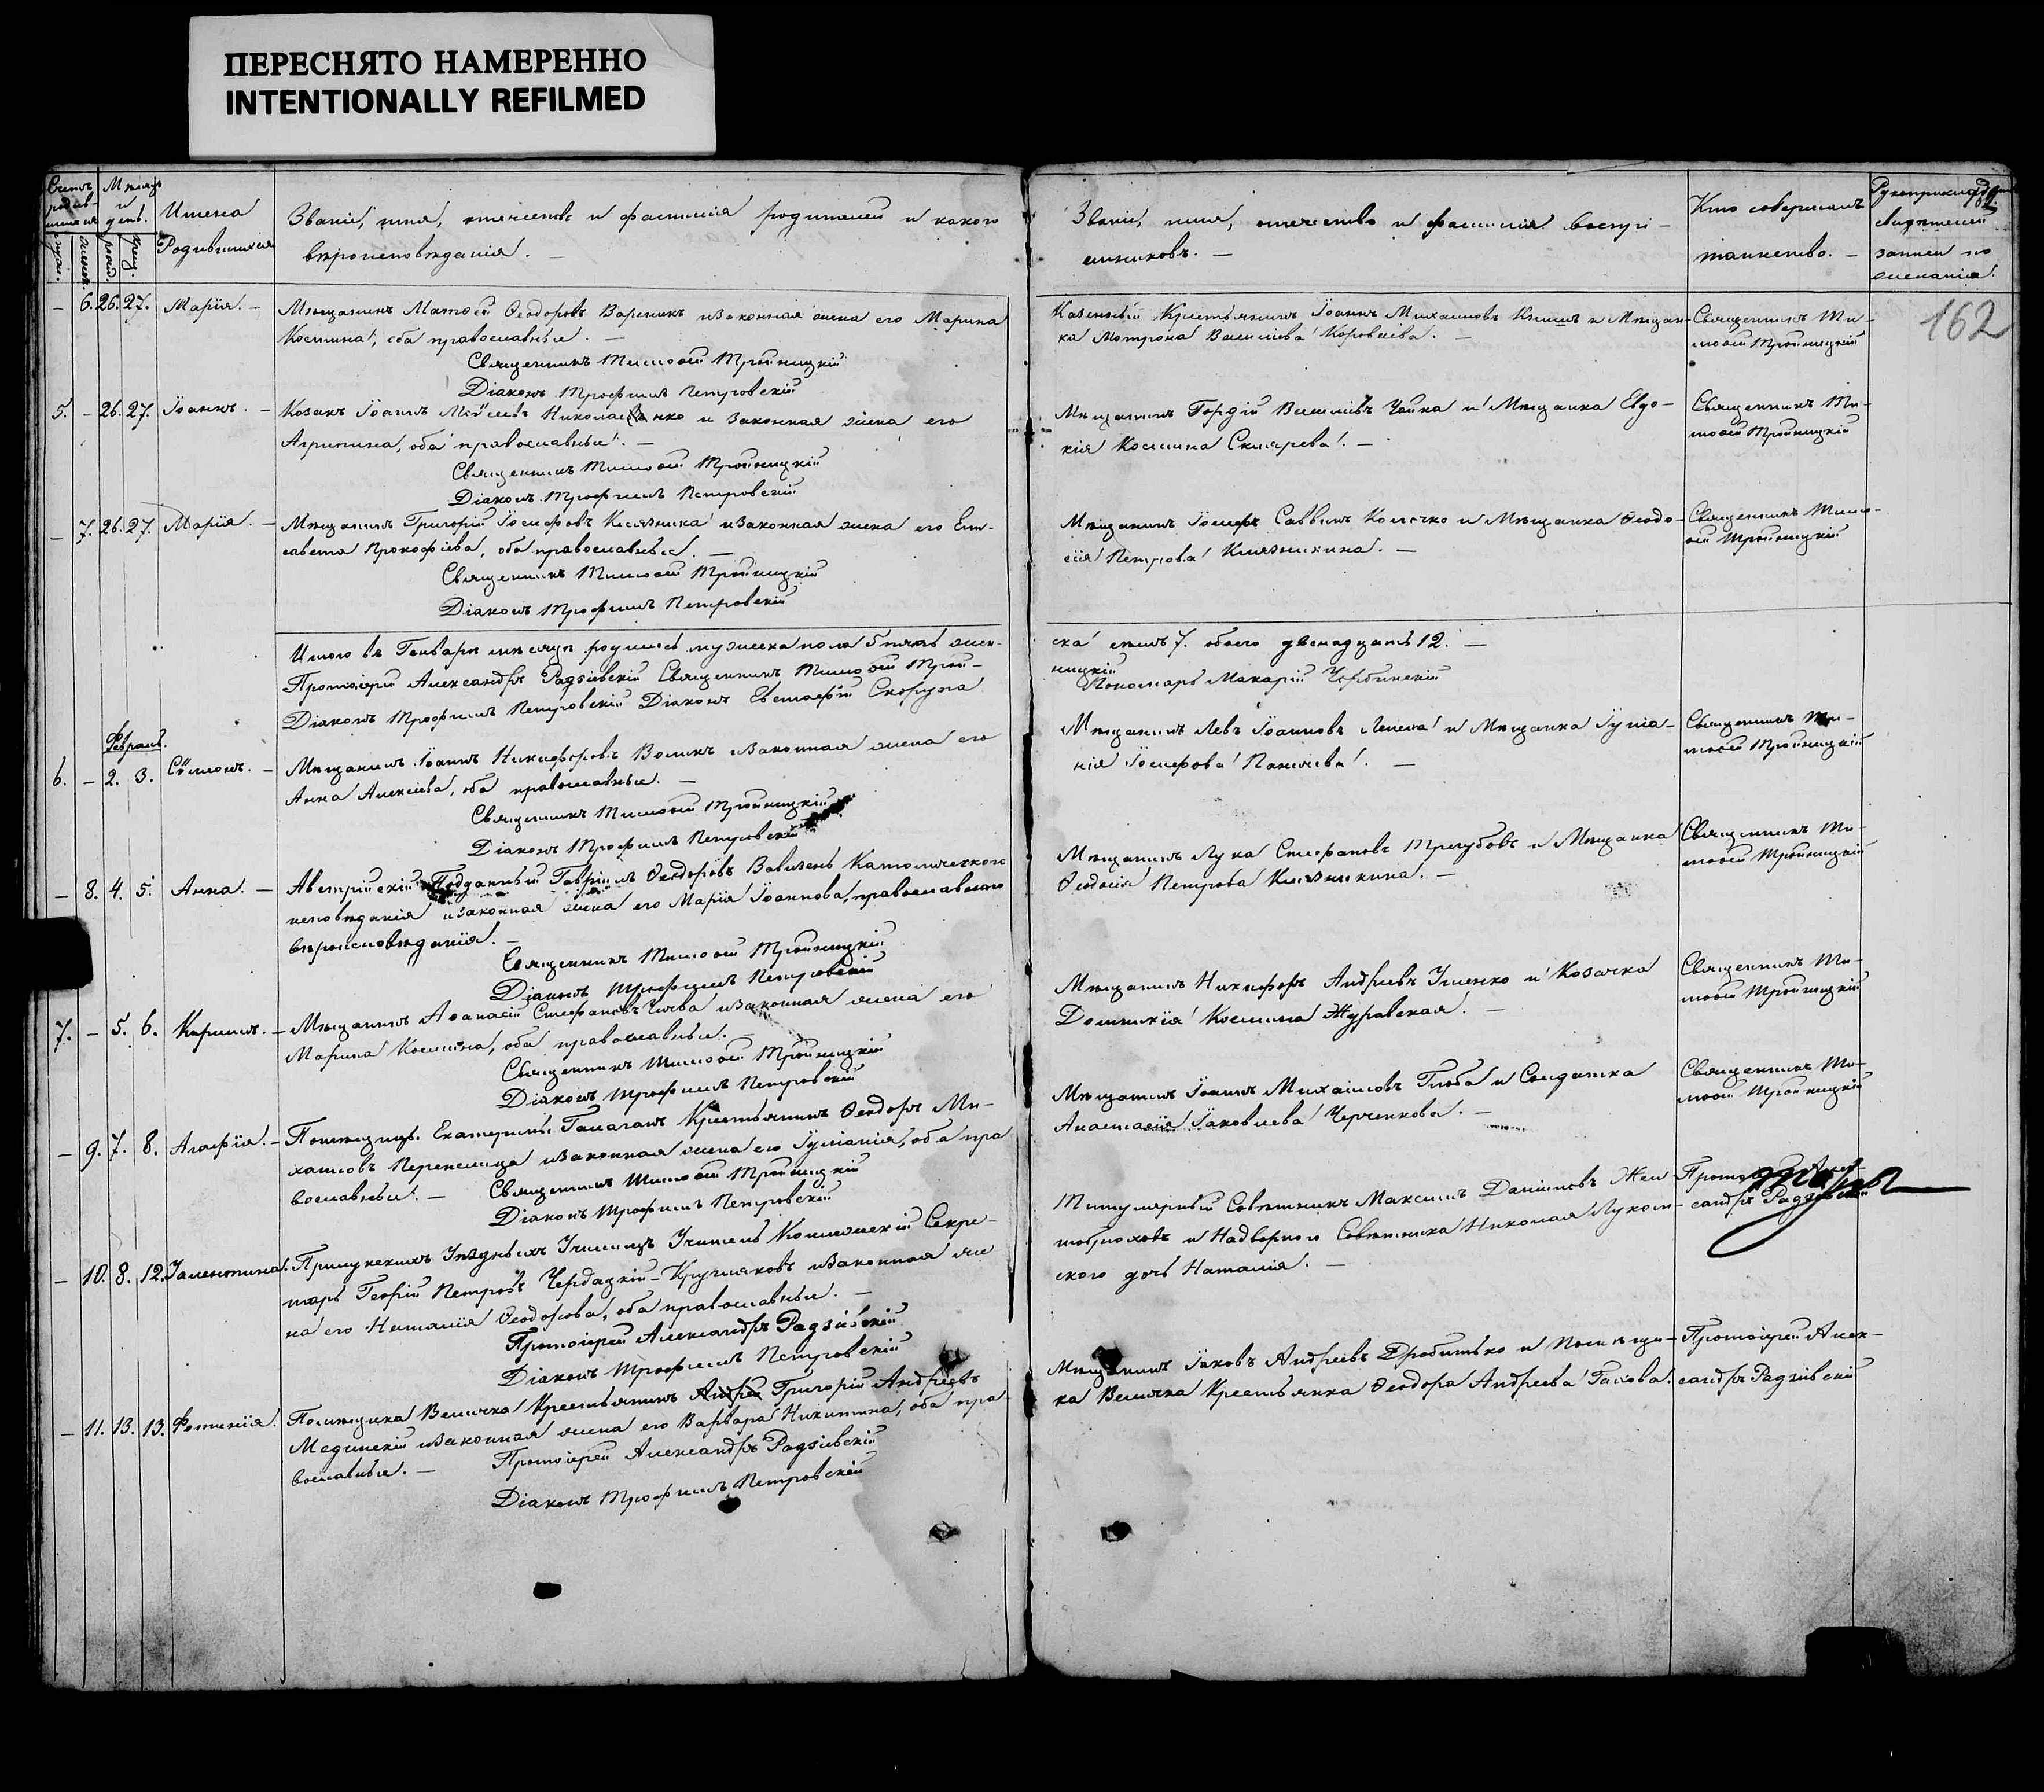 ПЕРЕСНЯТО НАМЕРЕННО
INTENTIONALLY REFILMED
Счетъ родив-шихся
Мѣсяцъ и день.
Имена Родившихся
Званіе, имя, отчество и фамилія родителей и какого
вѣроисповѣданія. —
Званіе, имя, отчество и фамилія воспрі-
емниковъ. —
Кто совершалъ
таинство. —
Рукоприкладство
свидѣтелей
записи по
желанію.
162
— 6. 26. 27. Марія. — Мѣщанинъ Матѳей Ѳеодоровъ Вареникъ и законная жена его Марина
Косьмина, оба православные. —
Священникъ Тимоѳей Тройницкій
Діаконъ Трофимъ Петровскій
Казенный Крестьянинъ Іоаннъ Михаиловъ и Мѣщан-
ка Мотрона Василіева Короваева. —
Священникъ Ти-
моѳей Тройницкій
5. — 26. 27. Іоаннъ. — Козакъ Іоаннъ Моѵсеевъ Николаенко и законная жена его
Агрипина, оба православные. —
Священникъ Тимоѳей Тройницкій
Діаконъ Трофимъ Петровскій
Мѣщанинъ Гордій Василіевъ Чайка и Мѣщанка Евдо-
кія Косьмина Склярева. —
Священникъ Ти-
моѳей Тройницкій
— 7. 26. 27. Марія. — Мѣщанинъ Григорій Іосифовъ Княжника и законная жена его Ели-
савета Прокофіева, оба православные. —
Священникъ Тимоѳей Тройницкій
Діаконъ Трофимъ Петровскій
Мѣщанинъ Іосифъ Саввинъ Колечко и Мѣщанка Ѳеодо-
сія Петрова Княжникина. —
Священникъ Тимо-
ѳей Тройницкій
Итого въ Генварѣ мѣсяцѣ родилось мужеска пола 5 пять жен-
ска семь 7. обоего двенадцать 12. —
Протоіерей Александръ Радзіевскій Священникъ Тимоѳей Трой-
ницкій
Діаконъ Трофимъ Петровскій Діаконъ Евстафій
Пономарь Макарій
Февраль.
6. — 2. 3. Сѵмеонъ. — Мѣщанинъ Іоаннъ Никифоровъ Воликъ и законная жена его
Анна Алексіева, оба православные. —
Священникъ Тимоѳей Тройницкій
Діаконъ Трофимъ Петровскій
Мѣщанинъ Левъ Іоанновъ и Мѣщанка Іуліа-
нія Іосифова —
Священникъ Ти-
моѳей Тройницкій
— 8. 4. 5. Анна. — Австрійскій Подданный Гавріилъ Ѳеодоровъ Католическаго
исповѣданія и законная жена его Марія Іоаннова, православнаго
вѣроисповѣданія. —
Священникъ Тимоѳей Тройницкій
Діаконъ Трофимъ Петровскій
Мѣщанинъ Лука Стефановъ Трегубовъ и Мѣщанка
Ѳеодосія Петрова Княжникина. —
Священникъ Ти-
моѳей Тройницкій
7. — 5. 6. Кирилъ. — Мѣщанинъ Аѳанасій Стефановъ и законная жена его
Марина Косьмина, оба православные. —
Священникъ Тимоѳей Тройницкій
Діаконъ Трофимъ Петровскій
Мѣщанинъ Никифоръ Андреевъ и Козачка
Домникія Косьмина Журавская. —
Священникъ Ти-
моѳей Тройницкій
— 9. 7. 8. Агафія. — Помѣщицы Екатерины Галаганъ Крестьянинъ Ѳеодоръ Ми-
хаиловъ Перепелица и законная жена его Іуліанія, оба пра
вославные. — Священникъ Тимоѳей Тройницкій
Діаконъ Трофимъ Петровскій
Мѣщанинъ Іоаннъ Михаиловъ Глоба и Солдатка
Анастасія Іаковлева Черченкова. —
Священникъ Ти-
моѳей Тройницкій
— 10. 8. 12. Прилукскихъ Уѣздныхъ Училищъ Учитель Коллежскій Секре-
тарь Георгій Петровъ Чердацкій-Кругляковъ и законная же
на его Наталія Ѳеодорова, оба православные. —
Протоіерей Александръ Радзіевскій
Діаконъ Трофимъ Петровскій
Титулярный Совѣтникъ Максимъ Даниловъ Жел-
тобрюховъ и Надворнаго Совѣтника Николая Луком-
скаго дочь Наталія. —
Протоіерей Алек-
сандръ Радзіевскій
— 11. 13. 13. Фотинія. Помѣщика Велички Крестьянинъ Григорій Андреевъ
Мединскій и законная жена его Варвара Никитина, оба пра-
вославные. — Протоіерей Александръ Радзіевскій
Діаконъ Трофимъ Петровскій
Мѣщанинъ Іаковъ Андреевъ Дробитько и Помѣщи-
ка Велички Крестьянка Ѳеодора Андреева
Протоіерей Алек-
сандръ Радзіевскій